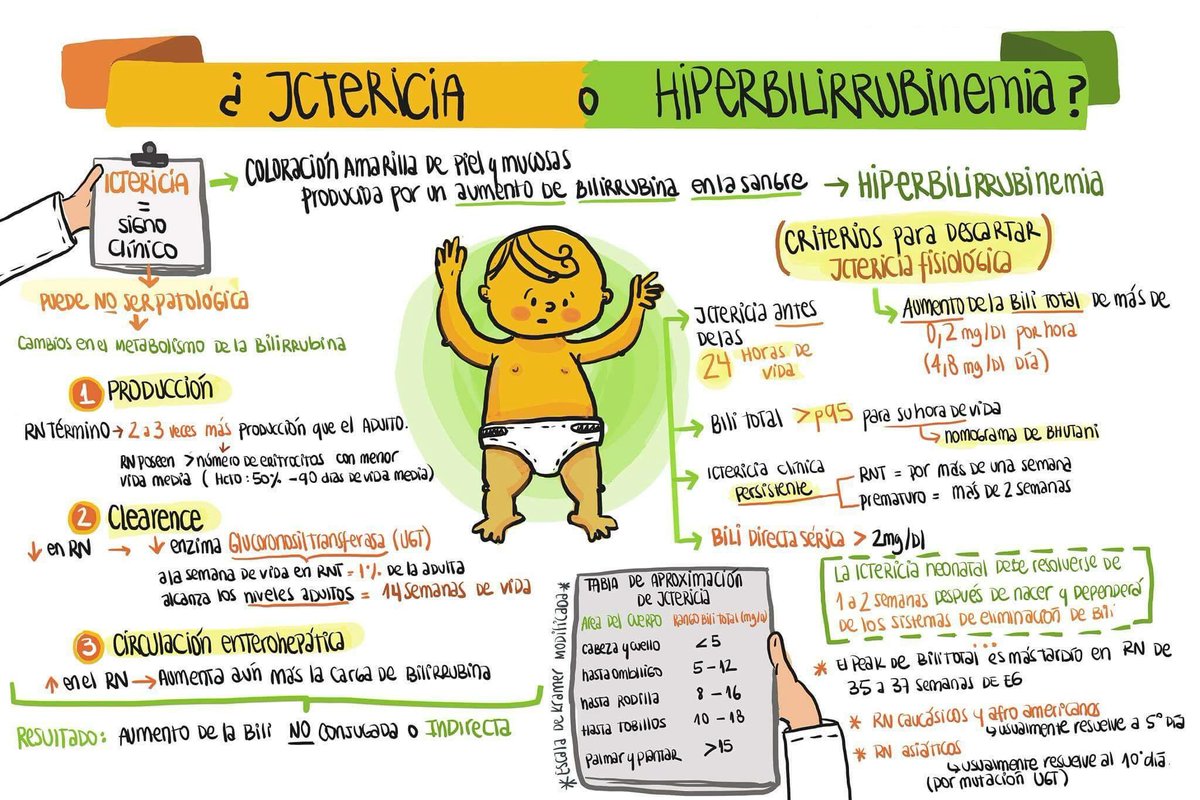 ¿ JCTERICIA o HIPERBILIRRUBINEMIA?
ICTERICIA
=
SIGNO
CLÍNICO
COLORACIÓN AMARILLA DE PIEL Y MUCOSAS
PRODUCIDA POR UN AUMENTO DE BILIRRUBINA EN LA SANGRE → HIPERBILIRRUBINEMIA
PUEDE NO SER PATOLÓGICA
CAMBIOS EN EL METABOLISMO DE LA BILIRRUBINA
1 PRODUCCIÓN
RN TÉRMINO → 2 a 3 veces más PRODUCCIÓN QUE EL ADULTO.
RN POSEEN > NÚMERO DE ERITROCITOS CON MENOR
VIDA MEDIA ( HCTO : 50% - 90 DIAS DE VIDA MEDIA)
2 Clearence
↓ en RN → ↓ enzima Glucoronosiltransferasa (UGT)
a la semana de vida en RNT = 1% de la adulta
alcanza los niveles adultos = 14 semanas de vida
3 CIRCULACIÓN enterohepática
↑ en el RN → Aumenta aún más la carga de Bilirrubina
RESULTADO: AUMENTO DE LA BILI NO CONJUGADA O INDIRECTA
(CRITERIOS PARA DESCARTAR
JCTERICIA FISIOLÓGICA)
AUMENTO DE LA BILI TOTAL DE MÁS DE
0,2 mg/Dl POR HORA
(4,8 mg/Dl DÍA)
JCTERICIA ANTES
DE LAS
24 HORAS DE
VIDA
BILI TOTAL > p95 PARA SU HORA DE VIDA
NOMOGRAMA DE BHUTANI
ICTERICIA CLÍNICA
PERSISTENTE
RNT = POR MÁS DE UNA SEMANA
PREMATURO = MÁS DE 2 SEMANAS
BILI DIRECTA SÉRICA > 2mg/Dl
LA ICTERICIA NEONATAL DEBE RESOLVERSE DE
1 a 2 SEMANAS DESPUÉS DE NACER Y DEPENDERÁ
DE LOS SISTEMAS DE ELIMINACIÓN DE BILI
* El PEAK DE BILI TOTAL es MÁS TARDÍO EN RN DE
35 a 37 SEMANAS DE EG
* RN CAUCÁSICOS Y AFRO AMERICANOS
↳ usualmente resuelve a 5° DÍA
* RN ASIÁTICOS
↳ usualmente resuelve al 10° día.
(POR MUTACIÓN UGT)
TABLA DE APROXIMACIÓN
DE JCTERICIA
AREA DEL CUERPO RANGO BILI TOTAL (mg/dl)
CABEZA Y CUELLO < 5
HASTA OMBILIGO 5 - 12
HASTA RODILLA 8 - 16
HASTA TOBILLOS 10 - 18
PALMAR Y PLANTAR > 15
* Escala de Kramer MODIFICADA *